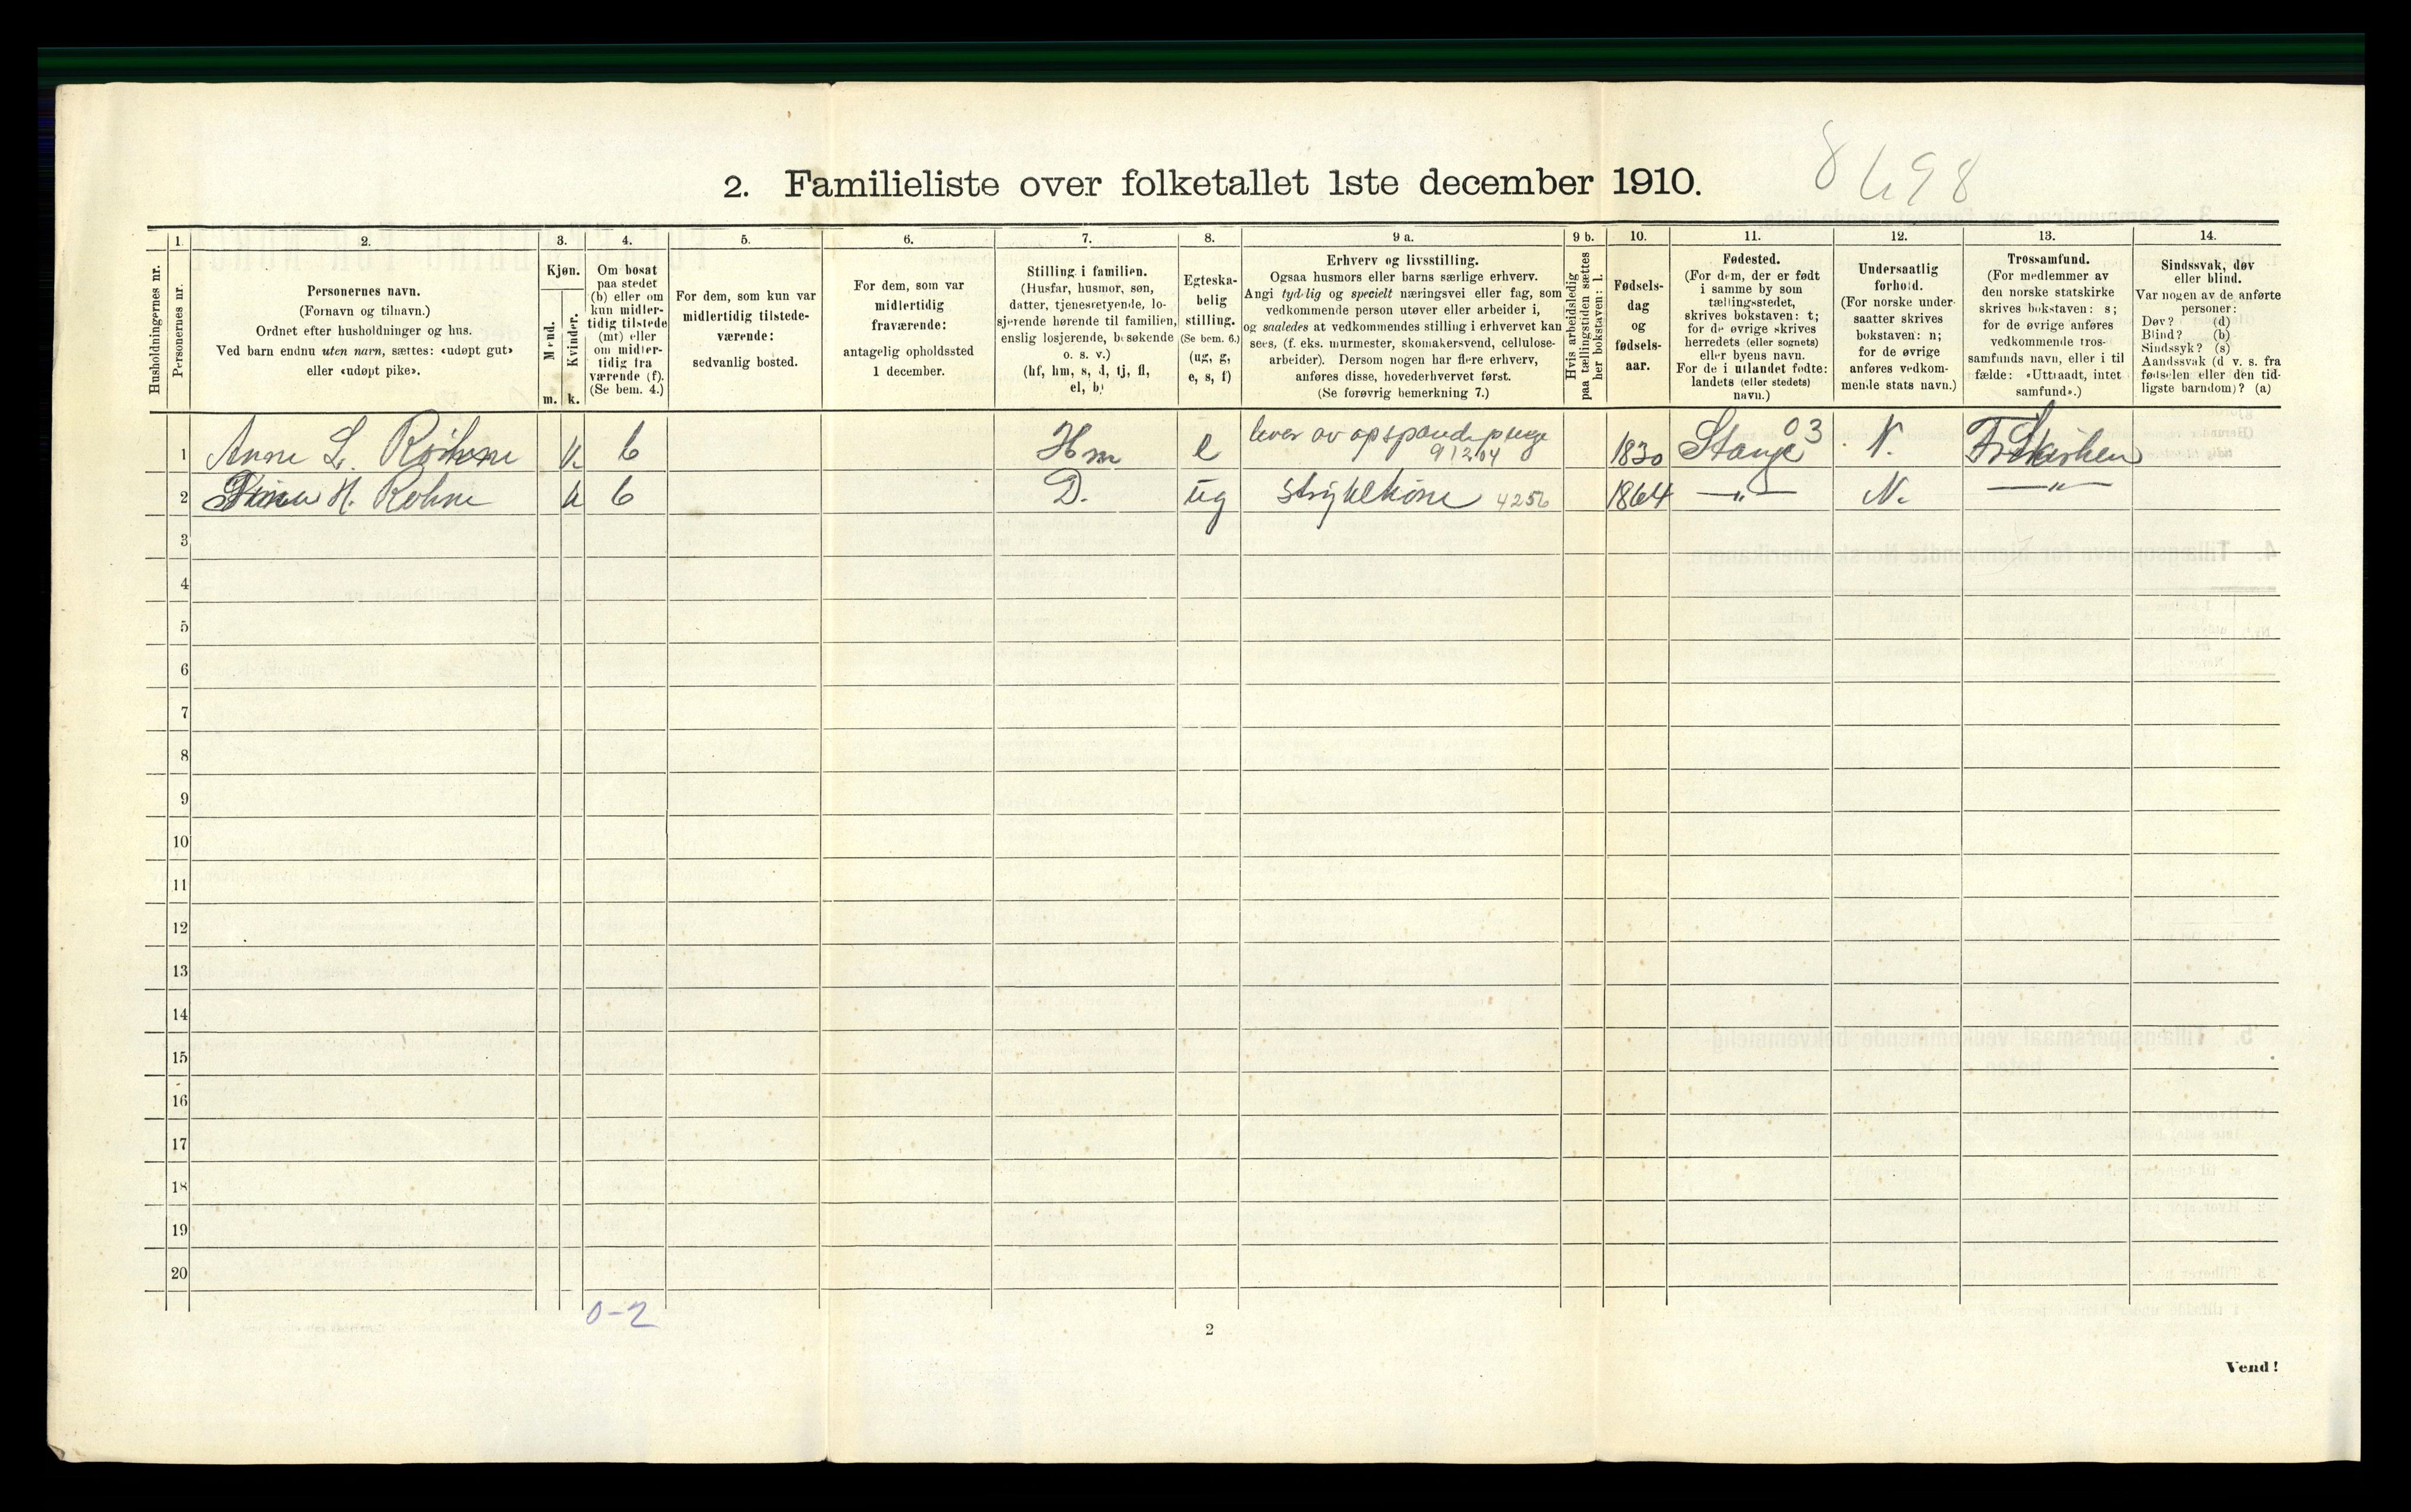 8498
2. Familieliste over folketallet 1ste december 1910.
Husholdningernes nr.
1.
Personernes nr.
2.
Personernes navn.
(Fornavn og tilnavn.)
Ordnet efter husholdninger og hus.
Ved barn endnu uten navn, sættes: «udøpt gut»
eller «udøpt pike».
3.
Kjøn.
Mænd.
Kvinder.
m.
k.
4.
Om bosat
paa stedet
(b) eller om
kun midler-
tidig tilstede
(mt) eller
om midler-
tidig fra
værende (f).
(Se bem. 4.)
5.
For dem, som kun var
midlertidig tilstede-
værende:
sedvanlig bosted.
6.
For dem, som var
midlertidig
fraværende:
antagelig opholdssted
1 december.
7.
Stilling i familien.
(Husfar, husmor, søn,
datter, tjenestetyende, lo-
sjerende hørende til familien,
enslig losjerende, besøkende
o. s. v.)
(hf, hm, s, d, tj, fl,
el, b)
8.
Egteska-
belig
stilling.
(Se bem. 6.)
(ug, g,
e, s, f)
9 a.
Erhverv og livsstilling.
Ogsaa husmors eller barns særlige erhverv.
Angi tydelig og specielt næringsvei eller fag, som
vedkommende person utøver eller arbeider i,
og saaledes at vedkommendes stilling i erhvervet kan
sees, (f. eks. murmester, skomakersvend, cellulose-
arbeider). Dersom nogen har flere erhverv,
anføres disse, hovederhvervet først.
(Se forøvrig bemerkning 7.)
9 b.
Hvis arbeidsledig
paa tællingstiden sættes
her bokstaven: l.
10.
Fødsels-
dag
og
fødsels-
aar.
11.
Fødested.
(For dem, der er født
i samme by som
tællingsstedet,
skrives bokstaven: t;
for de øvrige skrives
herredets (eller sognets)
eller byens navn.
For de i utlandet fødte:
landets (eller stedets)
navn.)
12.
Undersaatlig
forhold.
(For norske under-
saatter skrives
bokstaven: n;
for de øvrige
anføres vedkom-
mende stats navn.)
13.
Trossamfund.
(For medlemmer av
den norske statskirke
skrives bokstaven: s;
for de øvrige anføres
vedkommende tros-
samfunds navn, eller i til
fælde: «Uttraadt, intet
samfund».)
14.
Sindssvak, døv
eller blind.
Var nogen av de anførte
personer:
Døv? (d)
Blind? (b)
Sindssyk? (s)
Aandssvak (d v. s. fra
fødselen eller den tid-
ligste barndom)? (a)
1 Anne L. k b Hm e lever av opsparde penge 91204 1830 Stange 03 N.
2 H. Rohne k b D. ug strykekone 4256 1864 —„— N. —„—
3
4
5
6
7
8
9
10
11
12
13
14
15
16
17
18
19
20
0-2
2
Vend!